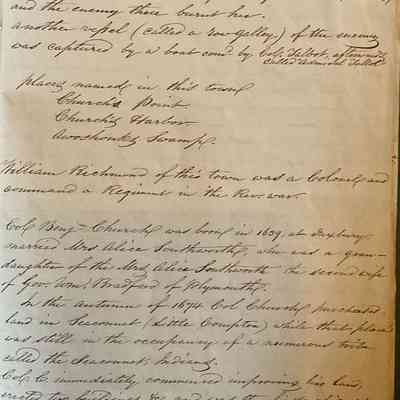 and the enemy there burnt her.
another vessel (called a row-galley) of the enemy
was captured by a boat com'd by Col. Talbot, afterwards
called Admiral Talbot
places named in this town
Church's Point
Church's Harbor
Awoshonks Swamp.
William Richmond of this town was a Colonel and
command a Regiment in the Rev. war.
Col. Benj- Church was born in 1639, at Duxbury
married Mrs Alice Southworth, who was a gran-
daughter of the Mrs Alice Southworth the second wife
of Gov. Wm. Bradford of Plymouth.
In the autumn of 1674 Col Church purchased
land in Seaconnet (Little Compton) while that place
was still in the occupancy of a numerous tribe
called the Seaconnet Indians.
Col. C. immediately commenced improving his land,
erected two buildings